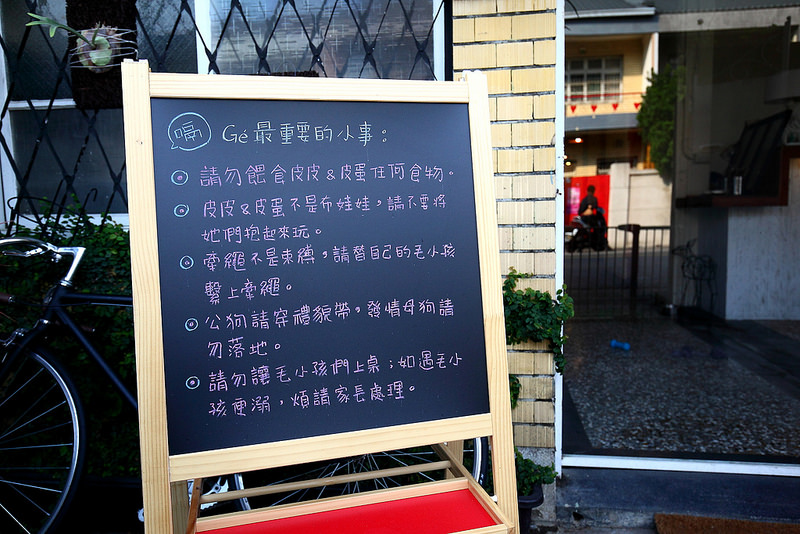 嗝 Gé 最重要的小事:
◎ 請勿餵食皮皮&皮蛋任何食物。
◎ 皮皮&皮蛋不是布娃娃,請不要將
她們抱起來玩。
◎ 牽繩不是束縛,請替自己的毛小孩
繫上牽繩。
◎ 公狗請穿禮貌帶,發情母狗請
勿落地。
◎ 請勿讓毛小孩們上桌;如遇毛小
孩便溺,煩請家長處理。